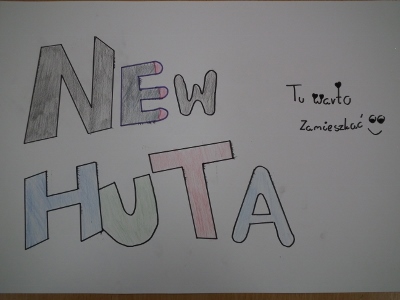 NEW
HUTA
Tu warto
zamieszkać